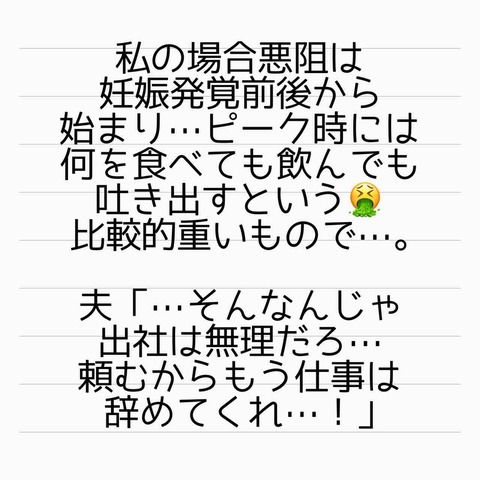 私の場合悪阻は
妊娠発覚前後から
始まり…ピーク時には
何を食べても飲んでも
吐き出すという🤮
比較的重いもので…。
夫「…そんなんじゃ
出社は無理だろ…
頼むからもう仕事は
辞めてくれ…！」